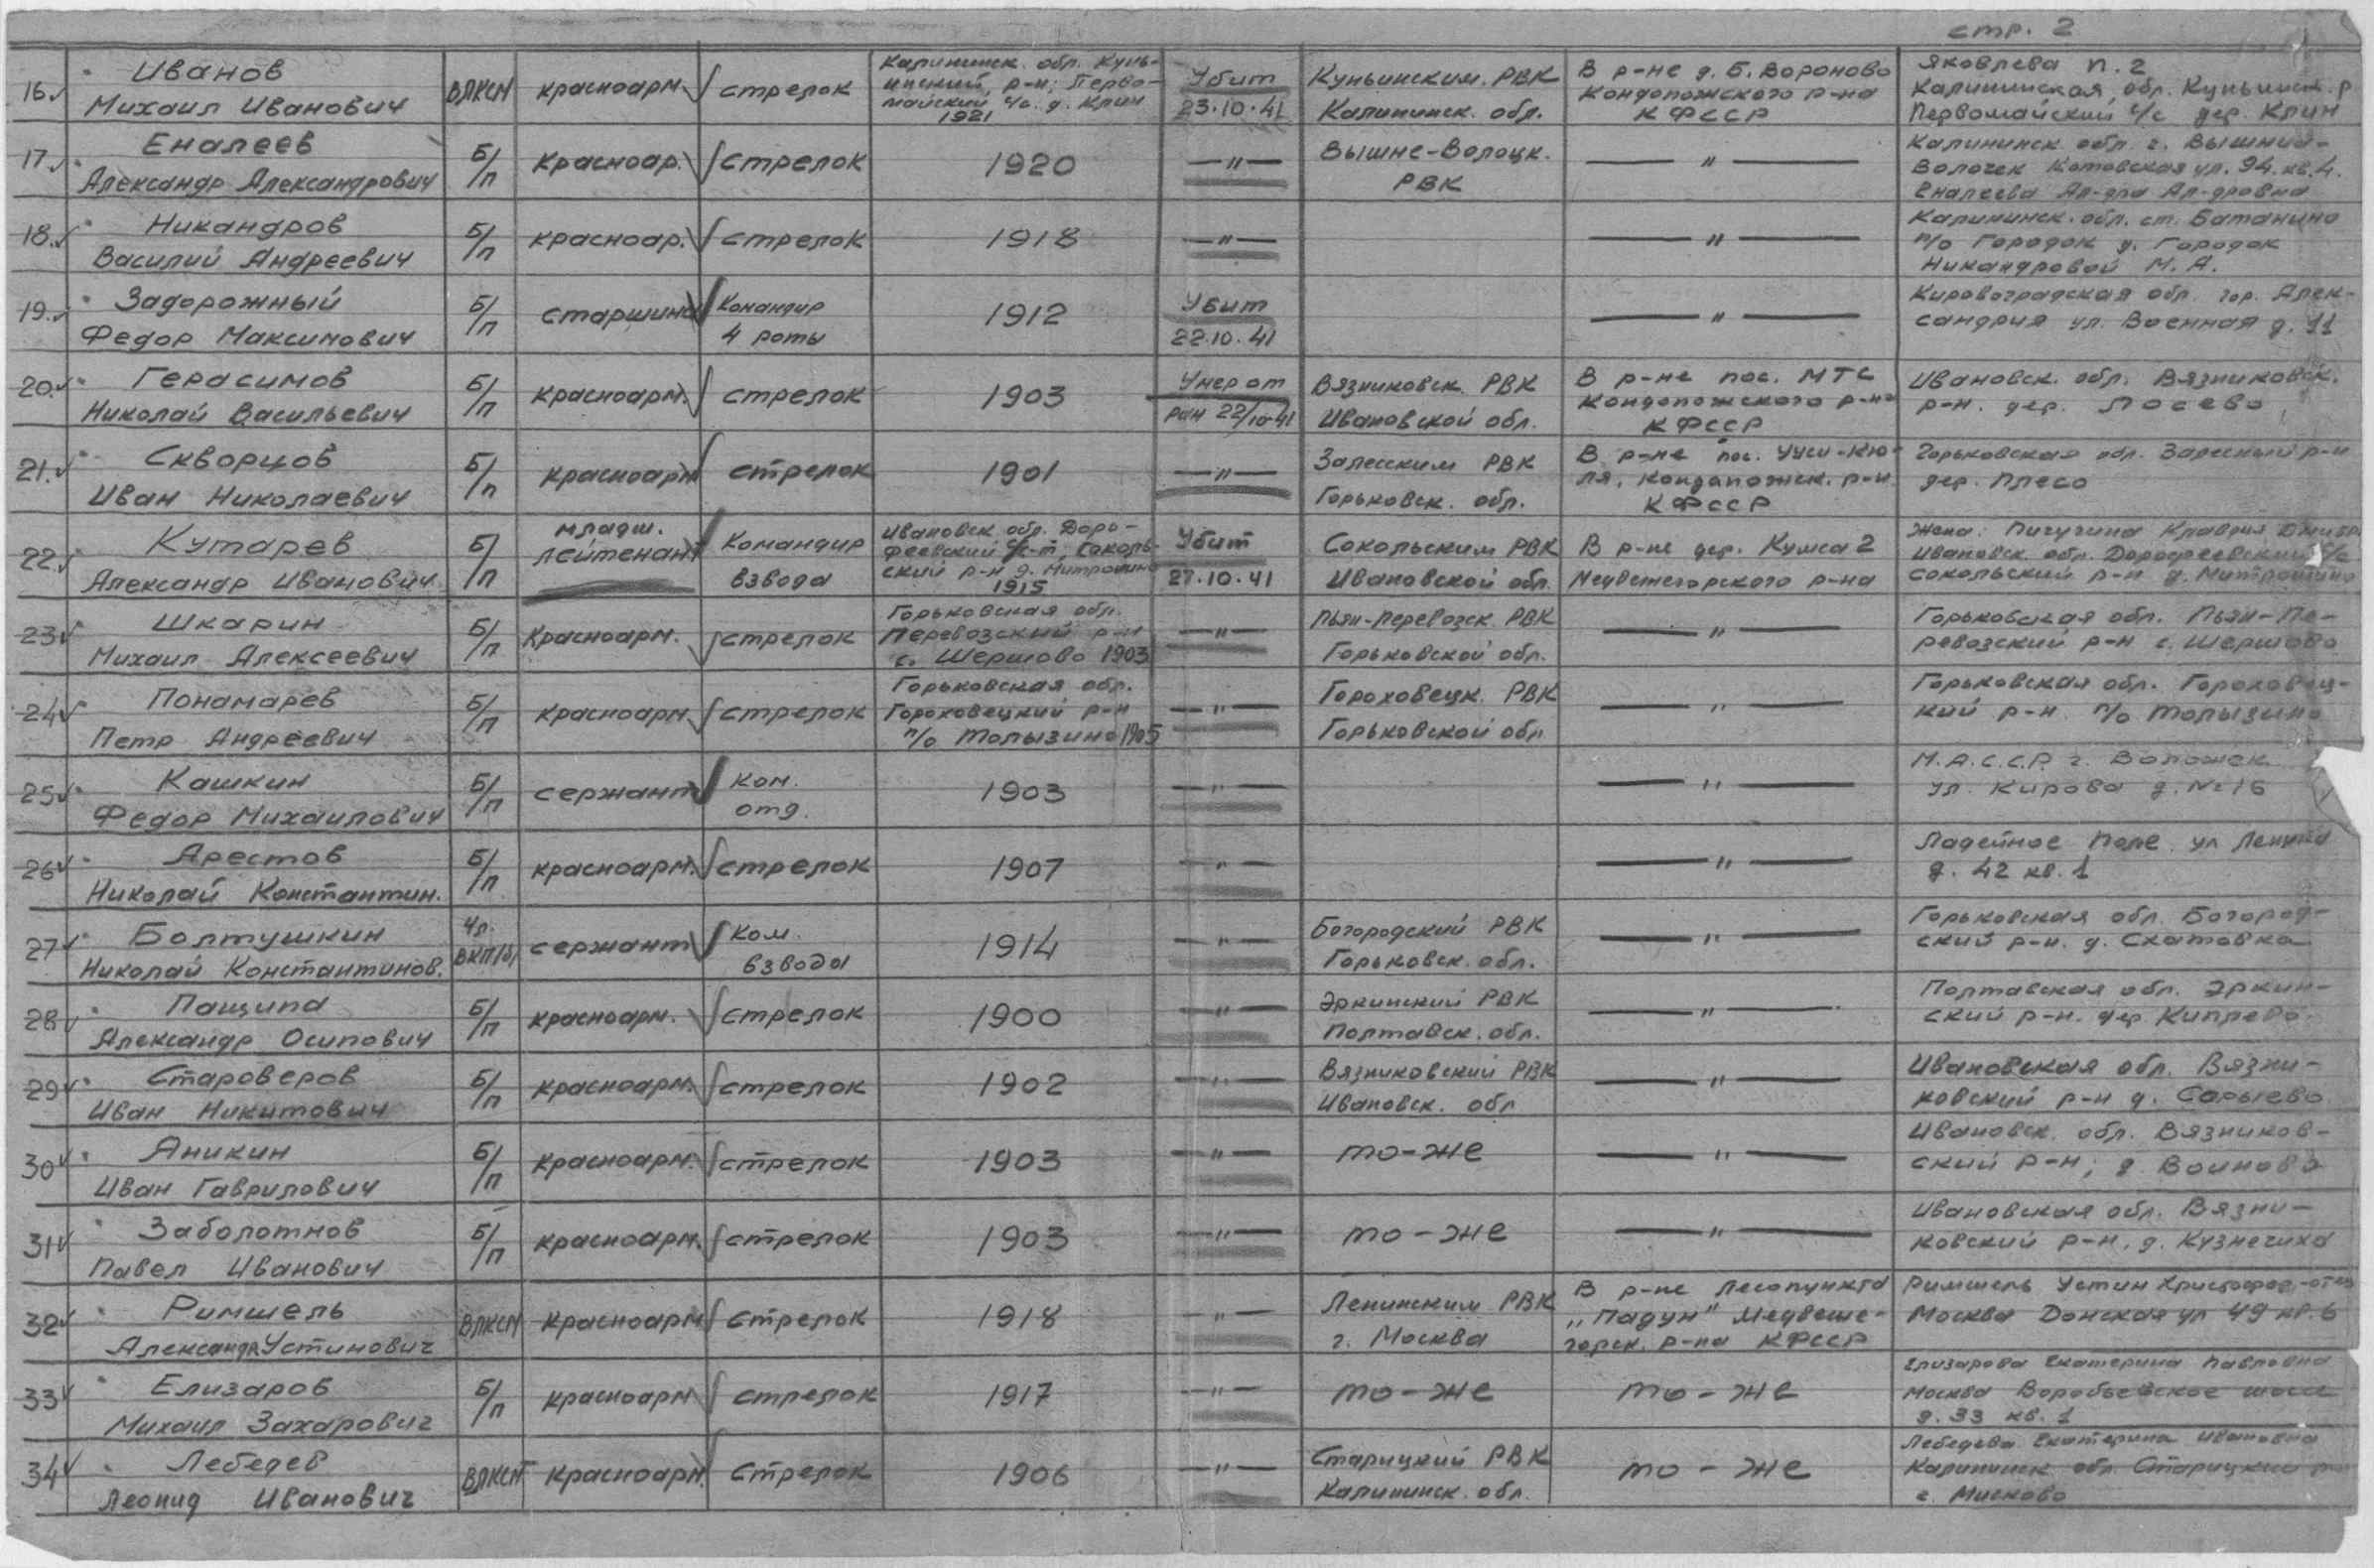 стр. 2
16
Иванов
Михаил Иванович
ВЛКСМ
красноарм.
стрелок
Калининск. обл. Кунь-
инский, р-н; Перво-
майский с/с. д. Клин
1921
Убит
23.10.41
Куньинским. РВК
Калининск. обл.
В р-не д. Б. Вороново
Кондопожского р-на
К ФССР
Яковлева П. 2
Калининская обл. Куньинск. р
Первомайский с/с дер. Клин
17.
Еналеев
Александр Александрович
Б/п
Красноар.
стрелок
1920
—"—
Вышне-Волоцк.
РВК
—"—
Калининск обл. г. Вышний-
Волочек Котовская ул. 94. кв. 4.
Еналеева Ал-дра Ал-дровна
18.
Никандров
Василий Андреевич
Б/п
красноар.
стрелок
1918
—"—
—"—
Калининск. обл. ст. Баталино
п/о Городок д. Городок
Никандровой М. А.
19.
Задорожный
Федор Максимович
Б/п
старшина
Командир
4 роты
1912
Убит
22.10.41
—"—
Кировоградская обл. гор. Алек-
сандрия ул. Военная д. 11
20.
Герасимов
Николай Васильевич
Б/п
красноарм.
стрелок
1903
Умер от
ран 22/10-41
Вязниковск. РВК
Ивановской обл.
В р-не пос. МТС
Кондопожского р-на
К ФССР
Ивановск. обл. Вязниковск.
р-н. дер. Лосево
21.
Скворцов
Иван Николаевич
Б/п
красноарм
стрелок
1901
—"—
Залесским РВК
Горьковск. обл.
В р-не пос. Ууси-Кю-
ля, Кондопожск. р-н
К ФССР
Горьковская обл. Залесный р-н
дер. Плесо
22.
Кутарев
Александр Иванович
Б/п
младш.
лейтенант
Командир
взвода
Ивановск. обл. Доро-
феевский с/с-т, Соколь-
ский р-н д. Митрошино
1915
Убит
27.10.41
Сокольским РВК
Ивановской обл.
В р-не дер. Кумса 2
Медвежегорского р-на
Жена: Пичугина Клавдия
Ивановск. обл. Дорофеевский с/с
сокольский р-н д. Митрошино
23
Шкарин
Михаил Алексеевич
Б/п
Красноарм.
стрелок
Горьковская обл.
Перевозский р-н
с. Шершово 1903
—"—
Пьян-Перевозск РВК
Горьковской обл.
—"—
Горьковская обл. Пьян-Пе-
ревозский р-н с. Шершово
24
Понамарев
Петр Андреевич
Б/п
красноарм.
стрелок
Горьковская обл.
Гороховецкий р-н
п/о Молызино 1905
—"—
Гороховецк. РВК
Горьковской обл
—"—
Горьковская обл. Гороховец-
кий р-н. п/о Молызино
25
Кашкин
Федор Михаилович
Б/п
сержант
Ком.
отд.
1903
—"—
—"—
М.А.С.С.Р. г.
ул. Кирова д. № 16
26
Арестов
Николай Константин.
Б/п
красноарм.
стрелок
1907
—"—
—"—
Ладейное Поле ул Ленина
д. 42 кв. 1
27
Болтушкин
Николай Константинов.
Чл.
ВКП/б/
сержант
Ком.
взвода
1914
—"—
Богородский РВК
Горьковск. обл.
—"—
Горьковская обл. Богород-
ский р-н. д. Схатовка
28
Пащипа
Александр Осипович
Б/п
красноарм.
стрелок
1900
—"—
Эркинский РВК
Полтавск. обл.
—"—
Полтавская обл. Эркин-
ский р-н. дер Киплево
29
Староверов
Иван Никитович
Б/п
красноарм.
стрелок
1902
—"—
Вязниковский РВК
Ивановск. обл
—"—
Ивановская обл. Вязни-
ковский р-н д. Сарыево
30
Аникин
Иван Гаврилович
Б/п
красноарм.
стрелок
1903
—"—
то-же
—"—
Ивановск. обл. Вязников-
ский р-н; д. Воиново
31
Заболотнов
Павел Иванович
Б/п
красноарм.
стрелок
1903
—"—
то-же
—"—
Ивановская обл. Вязни-
ковский р-н, д. Кузнечиха
32
Римшель
Александр Устинович
ВЛКСМ
Красноарм
стрелок
1918
—"—
Ленинским РВК
г. Москва
В р-не лесопункта
„Падун" Медвеже-
горск. р-на КФССР
Римшель Устин Христофор-отец
Москва Донская ул 49 кв. 6
33
Елизаров
Михаил Захарович
Б/п
красноарм
стрелок
1917
—"—
то-же
то-же
Елизарова Екатерина Павловна
Москва Воробьевское шоссе
д. 33 кв. 1
34
Лебедев
Леонид Иванович
ВЛКСМ
Красноарм.
Стрелок
1906
—"—
Старицкий РВК
Калининск. обл.
то-же
Лебедева Екатерина Ивановна
Калининск обл Старицкий р-н
с. Мисково